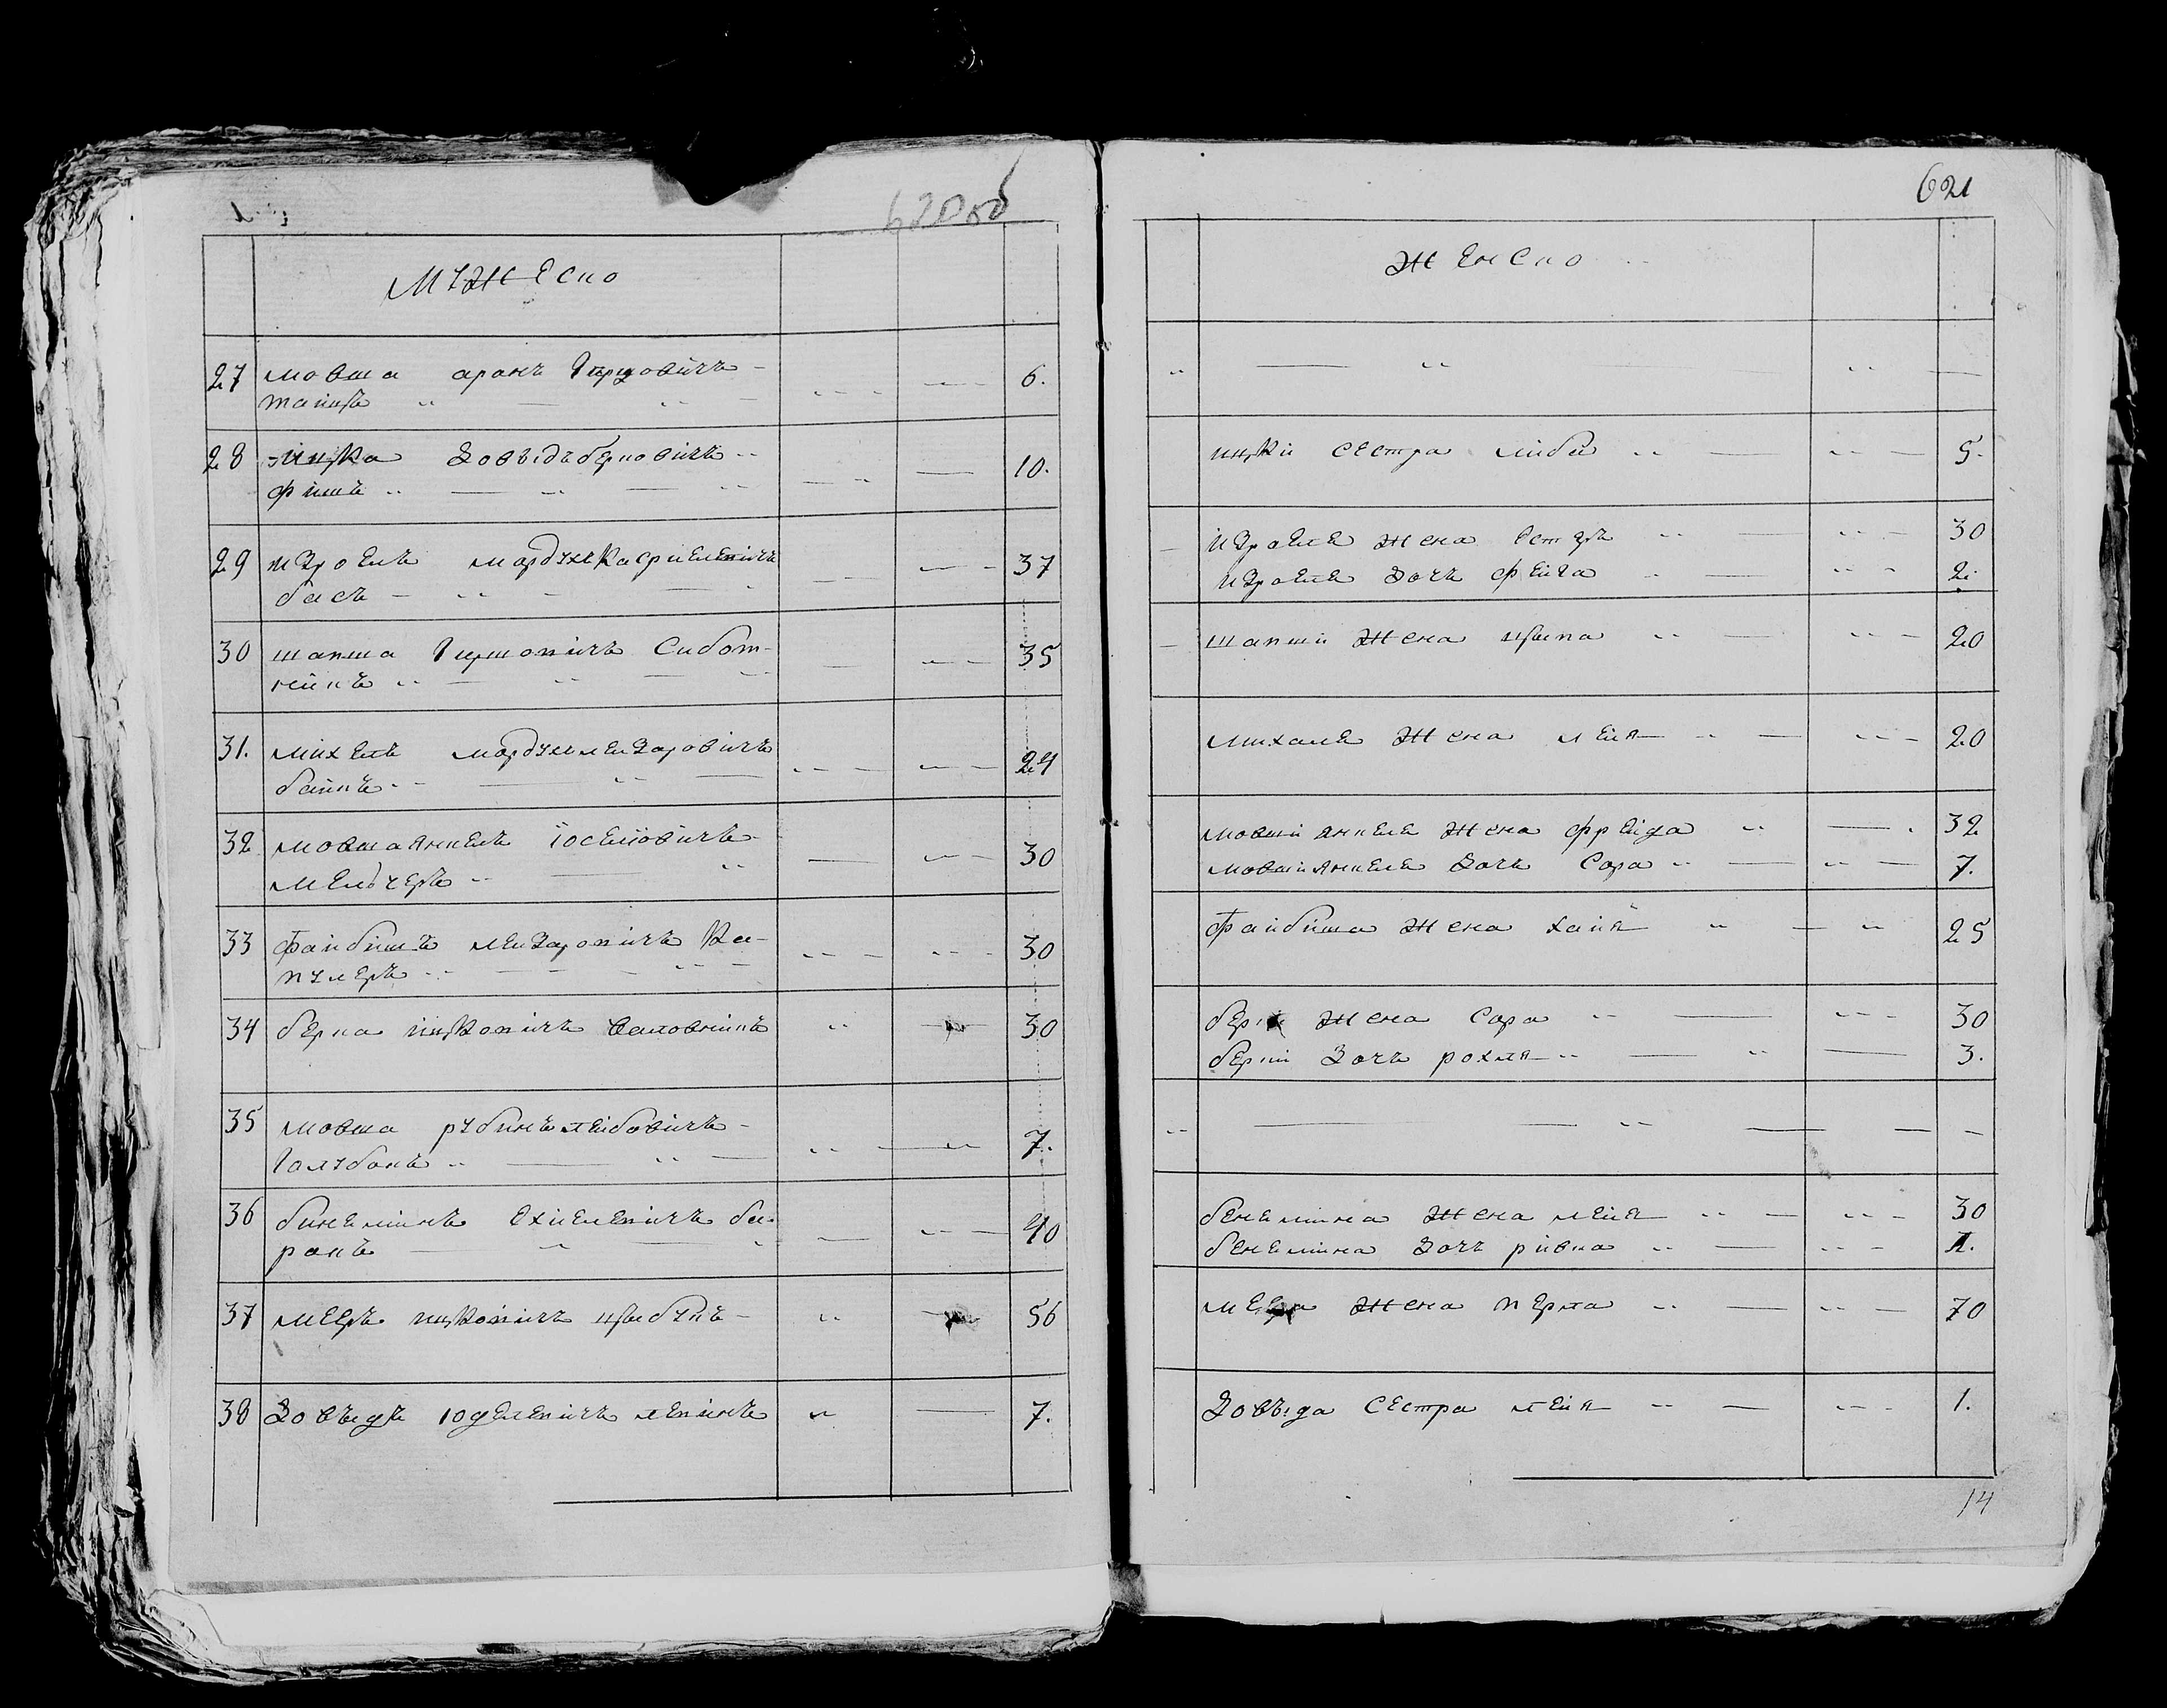 620 об
Мужеско
27 мовша аранъ Гершовичъ 6.
танцъ
28 ицка Довъдъберковичъ 10.
фишъ
29 изроель мордухкасриелевичъ 37
басъ
30 шапша Гиршовичъ Субот- 35
никъ
31. михель мордухлейзаровичъ 24
байнъ
32 мовшаянкель іоселіовичъ 30
мельчеръ
33 Файбишъ лейзаровичъ Ка- 30
пулеръ
34 берка ицковичъ 30
35 мовша рубинълейбовичъ 7.
Голубокъ
36 бинеминъ ехиелевичъ ба- 40
ронъ
37 мееръ ицковичъ цыбукъ 56
38 Довъидъ юделевичъ левинъ 7.
621
Женско
ицки сестра либи 5.
изроеля жена естеръ 30
изроеля дочь фейга 2.
шапши жена цыпа 20
михаля жена лейя 20
мовши янкеля жена фрейда 32
мовши янкеля дочь Сора 7.
Файбиша жена хайя 25
берки жена Сора 30
берки дочь рохля 3.
бенемина жена лейя 30
бенемина дочь ривка 1.
меера жена перла 70
Довъида сестра лейя 1.
14